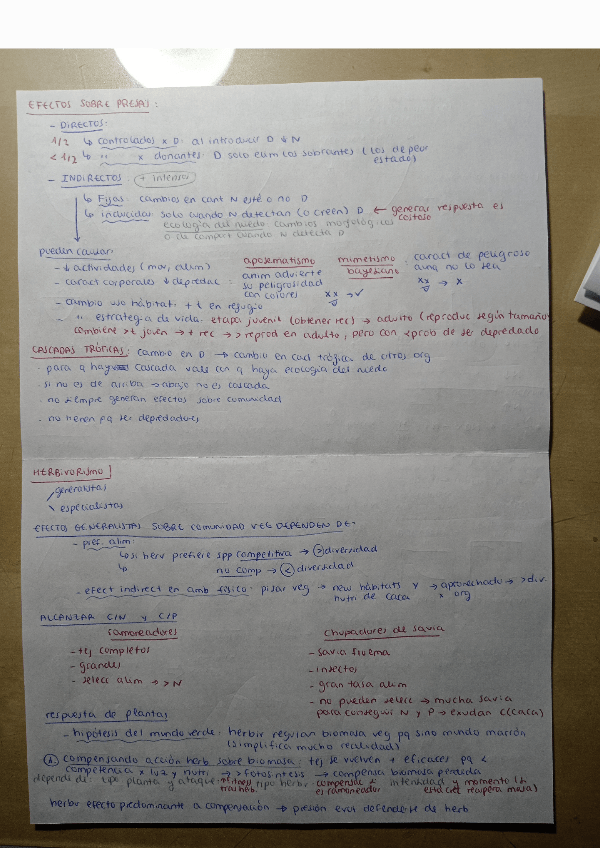 EFECTOS SOBRE PRESAS:
- DIRECTOS:
1/2 ↳ controlados x D: al introducir D ↓ N
< 1/2 ↳ " x donantes: D solo elim los sobrantes (los de peor estado)
- INDIRECTOS (+ intenso)
↳ Fijas: cambios en cant N esté o no D
↳ inducidas: solo cuando N detectan (o creen) D ← generar respuesta es costoso
ecología del miedo cambios morfológicos
o de comport cuando N detecta D
pueden causar
- ↓ actividades (mov, alim)
- caract corporales ↓ depredac:
aposematismo
anim advierte
su peligrosidad
con colores
mimetismo bayesiano: caract de peligroso
aunq no lo sea
xx → ✓
xx → x
- cambio uso hábitat: + t en refugio
- " estrategia de vida: etapa juvenil (obtener rec) → adulto (reproduc según tamaño)
combiene > t joven → + rec → > reprod en adulto, pero con < prob de ser depredado
CASCADAS TRÓFICAS: cambio en D → cambio en cad trófica de otros org
· para q haya cascada vale con q haya ecología del miedo
· si no es de arriba → abajo no es cascada
· no siempre generan efectos sobre comunidad
· no tienen pq ser depredadores
HERBIVORISMO
generalistas
especialistas
EFECTOS GENERALISTAS SOBRE COMUNIDAD VEG DEPENDEN DE:
- pref. alim:
↳ si herv prefiere spp competitiva → > diversidad
↳ no comp → < diversidad
- efect indirect en amb físico: pisar veg → new hábitats y nutri de caca → aprovechado x org → > div.
ALCANZAR C/N y C/P
ramoneadores
- tej completos
- grandes
- selecc alim → > N
chupadores de savia
- savia floema
- insectos
- gran tasa alim
- no pueden selecc → mucha savia
para conseguir N y P → exudan C (caca)
respuesta de plantas
- hipótesis del mundo verde: herbir regulan biomasa veg pq sino mundo marrón
(simplifica mucho realidad)
① compensando acción herb sobre biomasa: tej se vuelven + eficaces pq <
competencia x luz y nutri → > fotosíntesis → compensa biomasa perdida
depend de: tipo planta y ataque tipo herbir: compensac si es ramoneador intensidad y momento
herbir efecto predominante a compensación → presión evol defenderte de herb